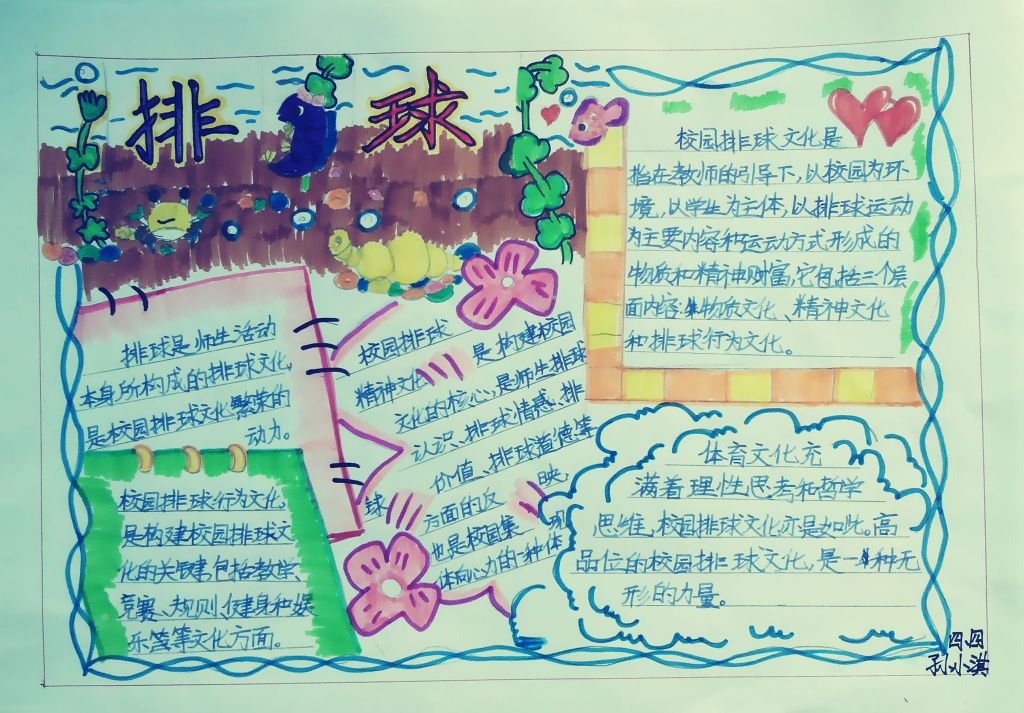 排球
校园排球文化是
指在教师的引导下,以校园为环
境,以学生为主体,以排球运动
为主要内容和运动方式形成的
物质和精神财富,它包括三个层
面内容:物质文化、精神文化
和排球行为文化。
排球是师生活动
本身所构成的排球文化,
是校园排球文化繁荣的
动力。
校园排球行为文化
是构建校园排球文
化的关键,包括教学、
竞赛、规则、健身和娱
乐等等文化方面。
校园排球
精神文化
是构建校园
文化的核心,是师生排球
认识、排球情感、排
球
价值、排球道德等
方面的反映,
也是校园集
现
体向心力的一种体
体育文化充
满着理性思考和哲学
思维,校园排球文化亦是如此。高
品位的校园排球文化,是一种无
形的力量。
四四
孙小淇